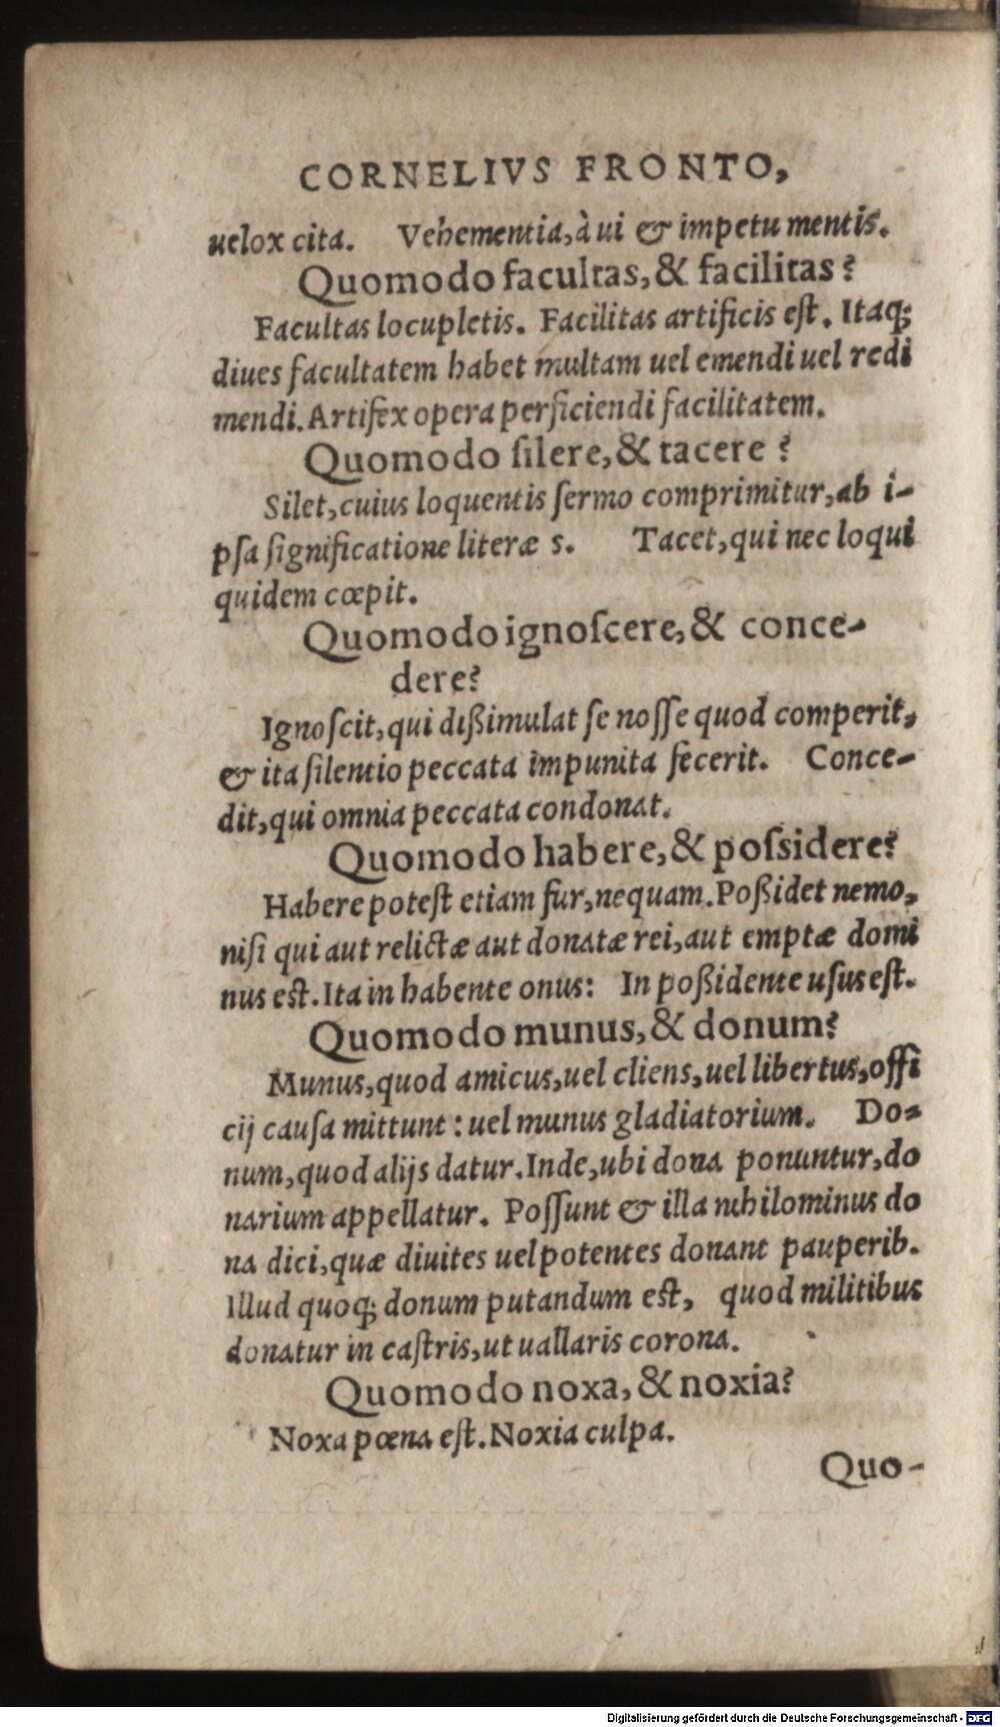 CORNELIVS FRONTO,
uelox cita. Vehementia, à ui & impetu mentis.
Quomodo facultas, & facilitas?
Facultas locupletis. Facilitas artificis eſt. Itaq;
diues facultatem habet multam uel emendi uel redi
mendi. Artifex opera perficiendi facilitatem.
Quomodo ſilere, & tacere?
Silet, cuius loquentis ſermo comprimitur, ab i-
pſa ſignificatione literæ s. Tacet, qui nec loqui
quidem cœpit.
Quomodo ignoſcere, & conce-
dere?
Ignoſcit, qui dißimulat ſe noſſe quod comperit,
& ita ſilentio peccata impunita fecerit. Conce-
dit, qui omnia peccata condonat.
Quomodo habere, & poſsidere?
Habere poteſt etiam fur, nequam. Poßidet nemo,
niſi qui aut relictæ aut donatæ rei, aut emptæ domi
nus eſt. Ita in habente onus: In poßidente uſus eſt.
Quomodo munus, & donum?
Munus, quod amicus, uel cliens, uel libertus, offi
cij cauſa mittunt: uel munus gladiatorium. Do-
num, quod alijs datur. Inde, ubi dona ponuntur, do
narium appellatur. Poſſunt & illa nihilominus do
na dici, quæ diuites uel potentes donant pauperib.
Illud quoq; donum putandum eſt, quod militibus
donatur in caſtris, ut uallaris corona.
Quomodo noxa, & noxia?
Noxa pœna eſt. Noxia culpa.
Quo-
Digitalisierung gefördert durch die Deutsche Forschungsgemeinschaft - DFG